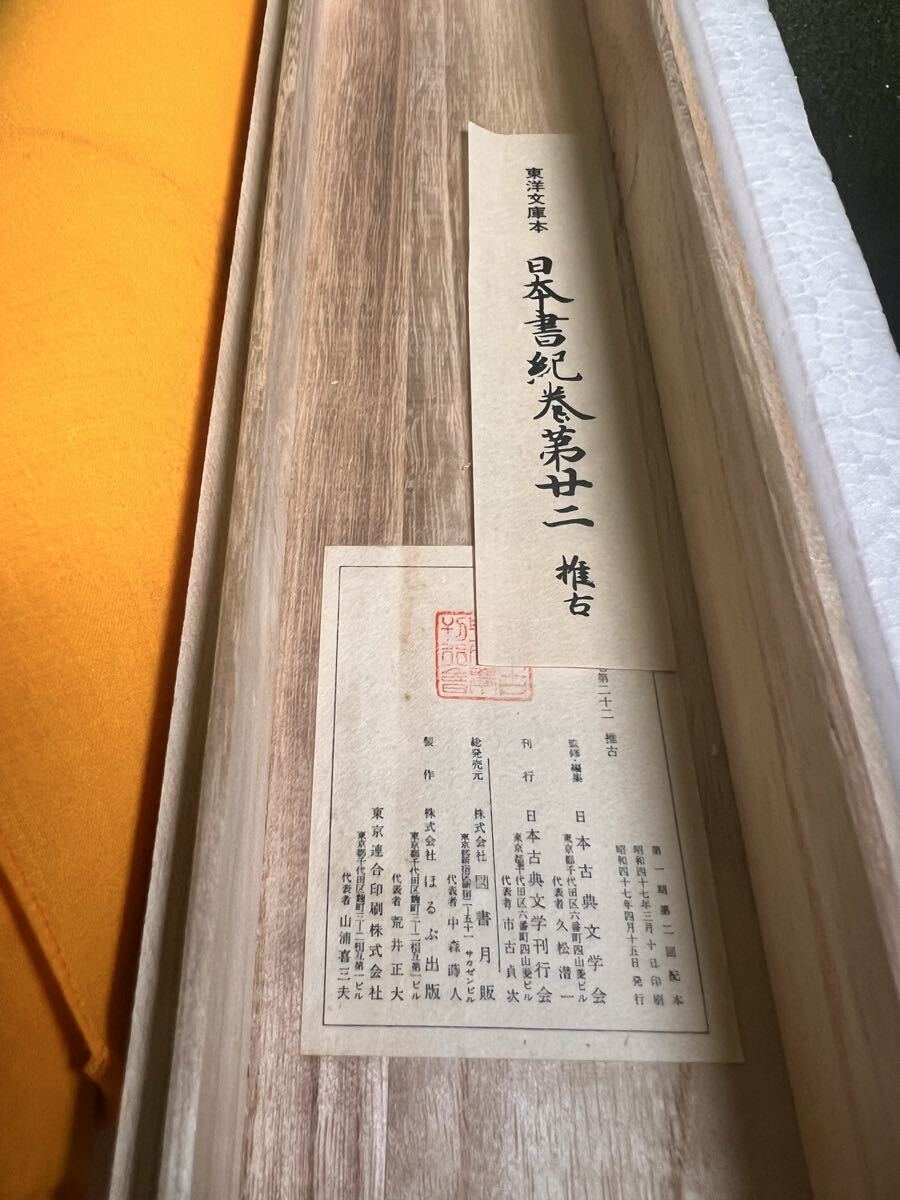 東洋文庫本
日本書紀卷第廿二
推古
第二十二 推古
第一期第二回配本
昭和四十七年三月十日印刷
昭和四十七年四月十五日発行
監修・編集 日本古典文学会
東京都千代田区六番町四山菱ビル
代表者 久松潜一
刊行 日本古典文学刊行会
東京都千代田区六番町四山菱ビル
代表者 市古貞次
総発売元 株式会社 図書月販
東京都新宿区新宿二―五十一 サカゼンビル
代表者 中森蒔人
製作 株式会社 ほるぷ出版
東京都千代田区麹町三―二相互第一ビル
代表者 荒井正大
東京連合印刷株式会社
東京都千代田区麹町三―二相互第一ビル
代表者 山浦喜三夫